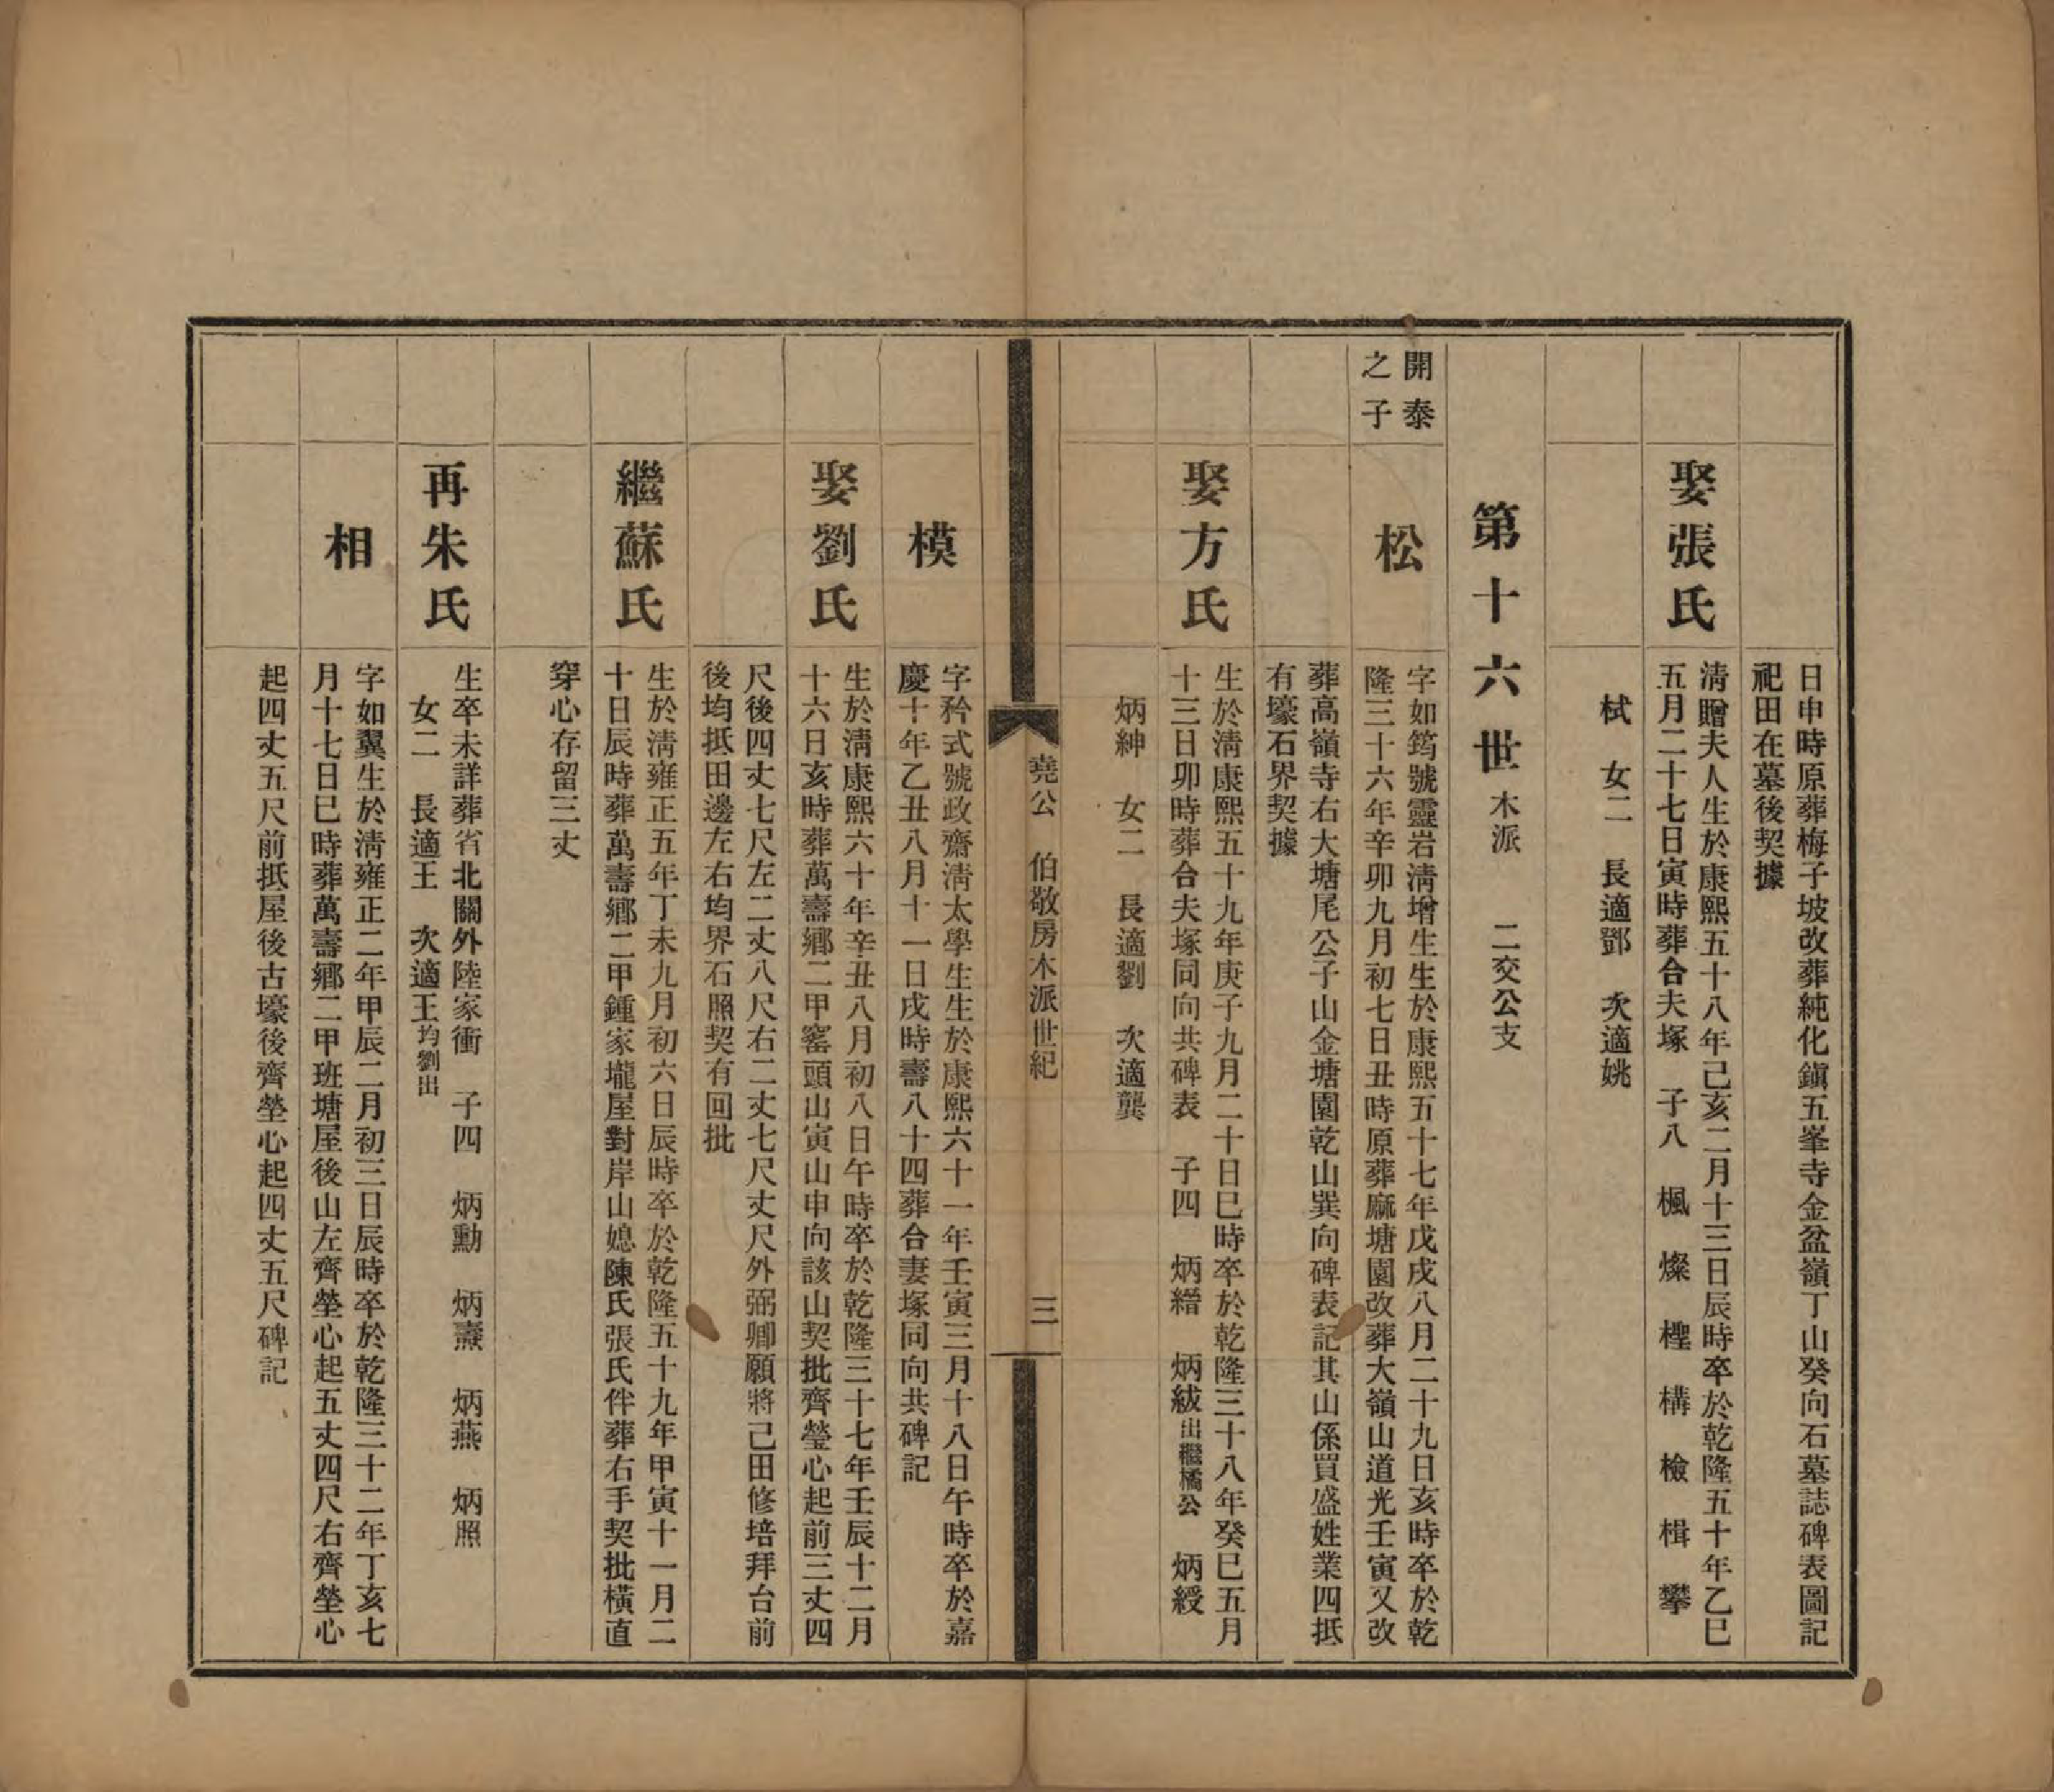 日申時原葬梅子坡改葬純化鎮五峯寺金盆嶺丁山癸向石墓誌碑表圖記
祀田在墓後契據
娶張氏
清贈夫人生於康熙五十八年己亥二月十三日辰時卒於乾隆五十年乙巳
五月二十七日寅時葬合夫塚　子八　楓　燦　檉　構　檢　楫　攀
栻　女二　長適鄧　次適姚
第十六世木派　二交公支
開泰
之子
松
字如筠號靈岩清增生生於康熙五十七年戊戌八月二十九日亥時卒於乾
隆三十六年辛卯九月初七日丑時原葬麻塘園改葬大嶺山道光壬寅又改
葬高嶺寺右大塘尾公子山金塘園乾山巽向碑表記其山係買盛姓業四抵
有壕石界契據
娶方氏
生於清康熙五十九年庚子九月二十日巳時卒於乾隆三十八年癸巳五月
十三日卯時葬合夫塚同向共碑表　子四　炳縉　炳紱出繼橘公　炳綬
炳紳　女二　長適劉　次適龔
堯公　伯敬房木派世紀　三
模
字矜式號政齋清太學生生於康熙六十一年壬寅三月十八日午時卒於嘉
慶十年乙丑八月十一日戌時壽八十四葬合妻塚同向共碑記
娶劉氏
生於清康熙六十年辛丑八月初八日午時卒於乾隆三十七年壬辰十二月
十六日亥時葬萬壽鄉二甲窰頭山寅山申向該山契批齊瑩心起前三丈四
尺後四丈七尺左二丈八尺右二丈七尺丈尺外弼卿願將己田修培拜台前
後均抵田邊左右均界石照契有回批
繼蘇氏
生於清雍正五年丁未九月初六日辰時卒於乾隆五十九年甲寅十一月二
十日辰時葬萬壽鄉二甲鍾家壠屋對岸山媳陳氏張氏伴葬右手契批橫直
穿心存留三丈
再朱氏
生卒未詳葬省北關外陸家衝　子四　炳勳　炳燾　炳燕　炳照
女二　長適王　次適王均劉出
相
字如翼生於清雍正二年甲辰二月初三日辰時卒於乾隆三十二年丁亥七
月十七日巳時葬萬壽鄉二甲班塘屋後山左齊塋心起五丈四尺右齊塋心
起四丈五尺前抵屋後古壕後齊塋心起四丈五尺碑記